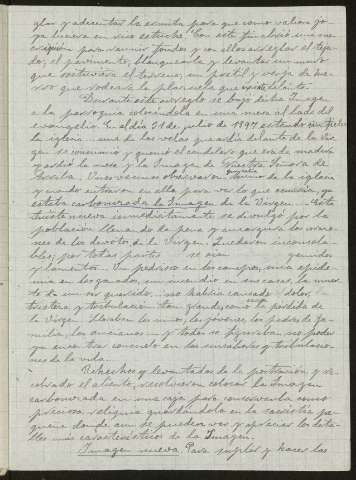 glar y adecentar la ermita para que como valiosa jo-
ya luciera en rico estuche. Con este fin abrió una sus-
cripción para reunir fondos y con ellos arreglar el teja-
do, el pavimento, blanquearla y levantar un muro
que sostuviera el terreno, un pretil y verja de hie-
rro que rodeara la plazuela que existe delante.
Durante este arreglo se bajó dicha Imagen
a la parroquia colocándola en una mesa al lado del
evangelio. En el día 21 de julio de 1897 estando
la iglesia una de las velas que ardía delante de la Vir-
gen se consumió y quemó el candelero que era de madera
y ardió la mesa y la Imagen de Nuestra Señora de
Unos vecinos observaron de la iglesia
y cuando entraron en ella para ver lo que ocurría, ya
estaba carbonizada la Imagen de la Virgen. Esta
triste nueva inmediatamente se divulgó por la
población llenando de pena y amargura los corazo-
nes de los devotos de la Virgen. Quedaron inconsola-
bles; por todas partes se oían gemidos
y lamentos. Un pedrisco en los campos, una epide-
mia en los ganados, un incendio en sus casas, la muer-
te de un ser querido, no habría causado dolor,
tristeza y tribulación tan grande, como la pérdida de
la Virgen. Lloraban los niños, los jóvenes, los padres de fa-
milia, los ancianos y todos se figuraban no poder
ya encontrar consuelo en las ansiedades y tribulacio-
nes de la vida.
Rehechos y levantados de la postración y re-
cobrado el aliento, resolvieron colocar la Imagen
carbonizada en una caja para conservarla como
preciosa reliquia guardándola en la sacristía pe-
queña donde aun se pueden ver y apreciar los deta-
lles más característicos de la Imagen.
Imagen nueva. Para suplir y hacer las